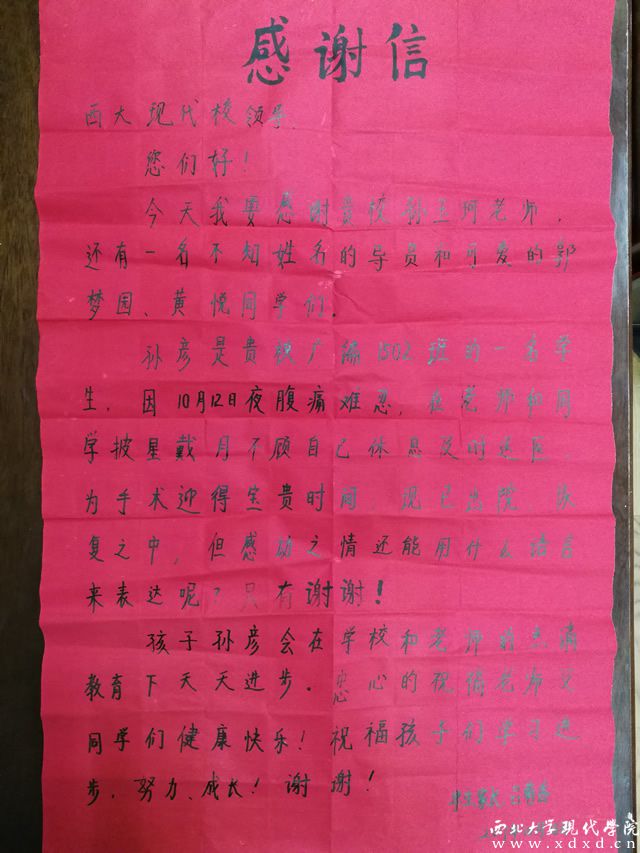 感谢信
西大现代校领导:
您们好!
今天我要感谢贵校孙玉珂老师,
还有一名不知姓名的导员和可爱的郭
梦园、黄悦同学们.
孙彦是贵校广编1502班的一名学
生,因10月12日夜腹痛难忍,在老师和同
学披星戴月不顾自己休息及时送医,
为手术迎得宝贵时间,现已出院 恢
复之中,但感动之情还能用什么语言
来表达呢?只有谢谢!
孩子孙彦会在学校和老师的
教育下天天进步.衷心的祝福老师父
同学们健康快乐!祝福孩子们学习进
步、努力、成长!谢谢!
学生家长
西北大学现代学院
www.xdxd.cn